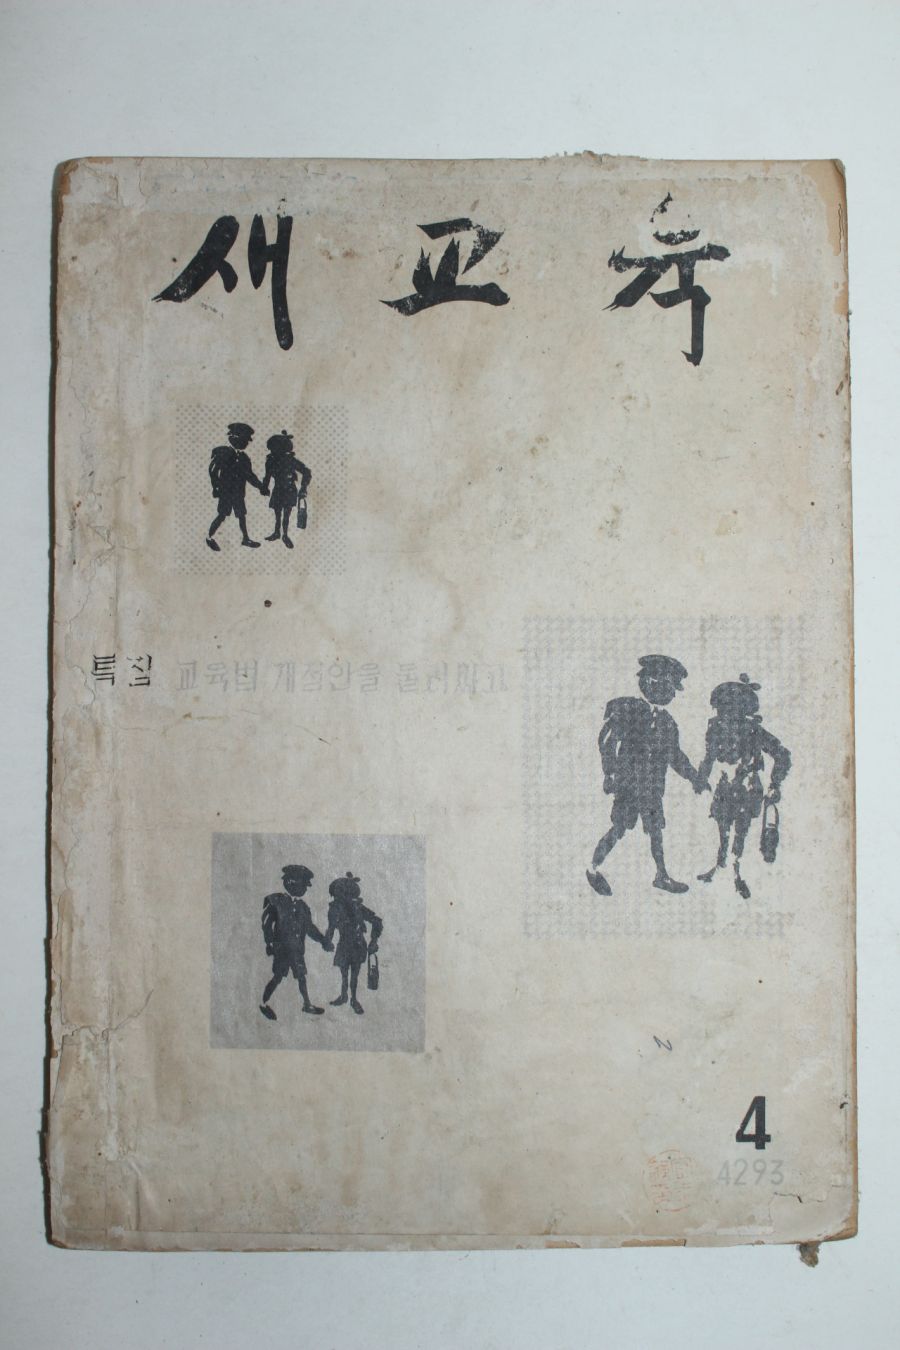 새교육
특집 교육법 개정안을 둘러싸고
4
4293